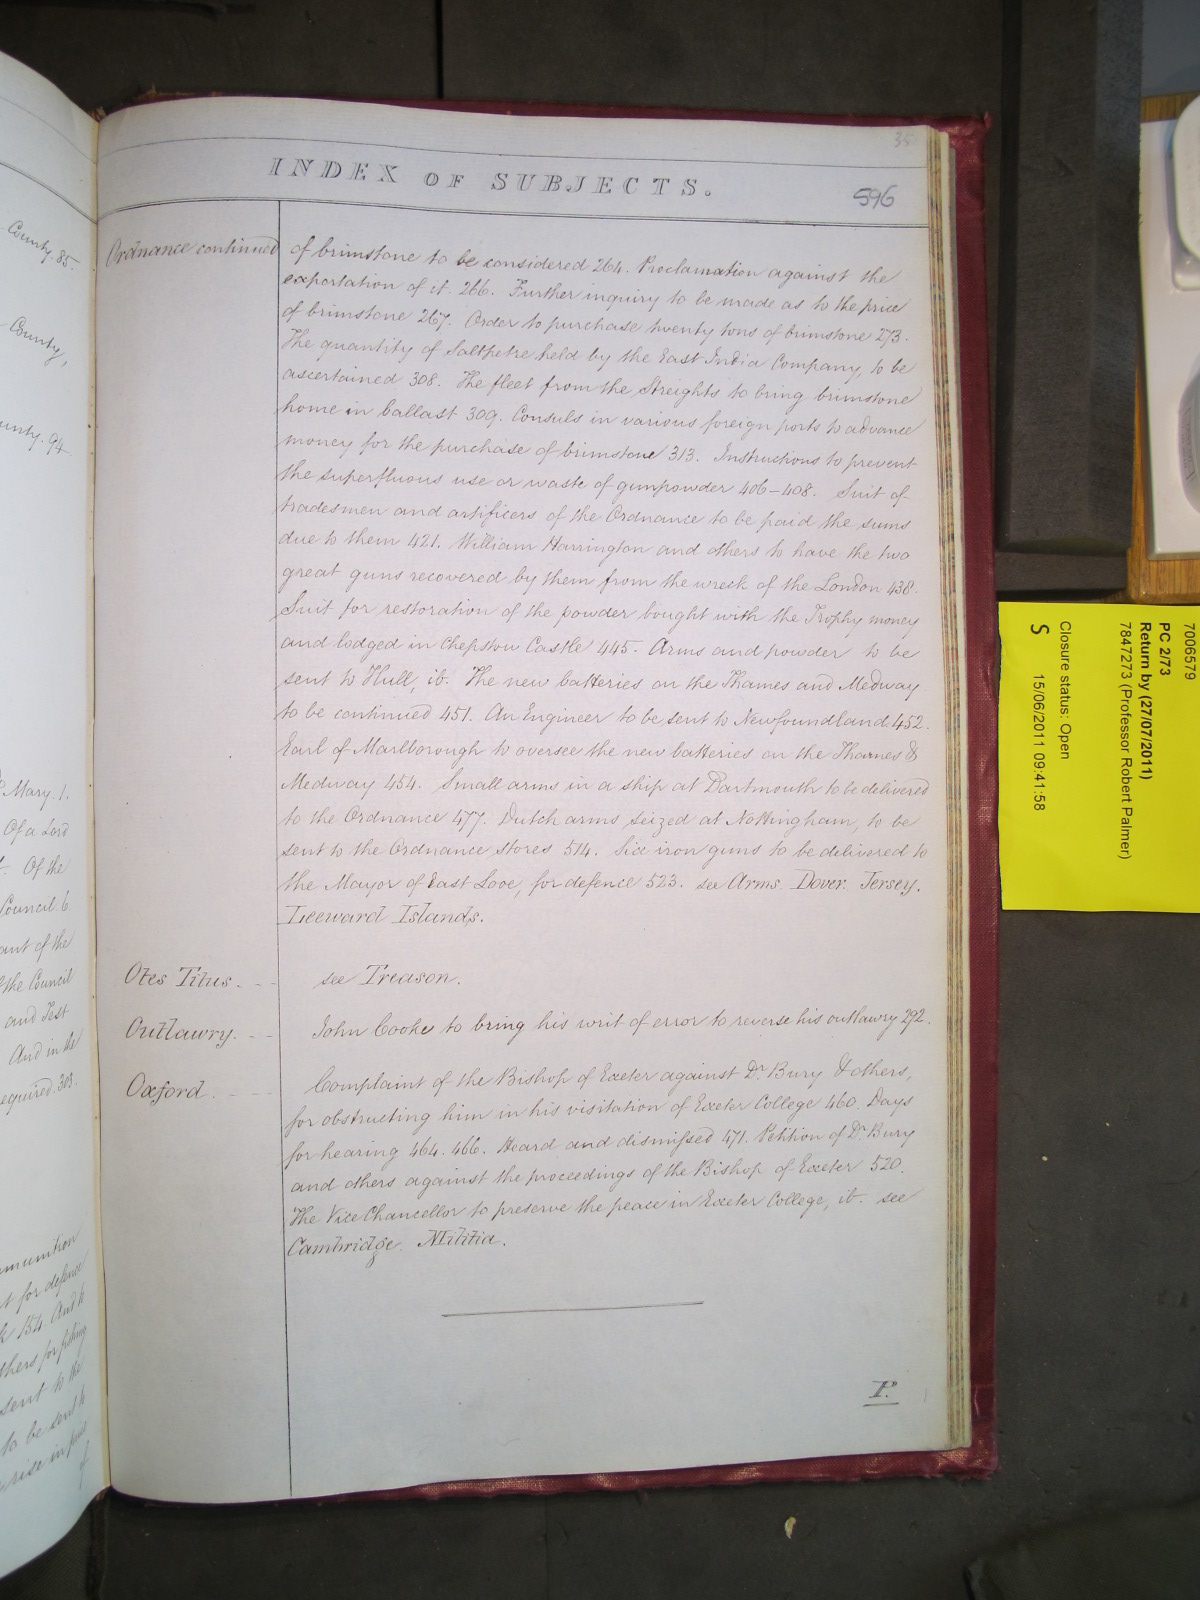 35
INDEX OF SUBJECTS.
596
County. 85.
County,
94
Mary. 1.
Of a Lord
Of the
Council 6
of the
the Council
and Test
And in the
303.
for defence
154. And to
for fitting
sent to the
to be sent to
rise in
of
Ordnance continued
of brimstone to be considered 264. Proclamation against the
exportation of it. 266. Further inquiry to be made as to the price
of brimstone 267. Order to purchase twenty tons of brimstone 273.
The quantity of Saltpetre held by the East India Company, to be
ascertained 308. The fleet from the Streights to bring brimstone
home in ballast 309. Consuls in various foreign ports to advance
money for the purchase of brimstone 313. Instructions to prevent
the superfluous use or waste of gunpowder 406-408. Suit of
tradesmen and artificers of the Ordnance to be paid the sums
due to them 421. William Harrington and others to have the two
great guns recovered by them from the wreck of the London 438.
Suit for restoration of the powder bought with the Trophy money
and lodged in Chepstow Castle 445. Arms and powder to be
sent to Hull, ib. The new batteries on the Thames and Medway
to be continued 451. An Engineer to be sent to Newfoundland 452.
Earl of Marlborough to oversee the new batteries on the Thames &
Medway 454. Small arms in a ship at Dartmouth to be delivered
to the Ordnance 477. Dutch arms seized at Nottingham, to be
sent to the Ordnance stores 514. Six iron guns to be delivered to
the Mayor of East Looe, for defence 523. see Arms. Dover. Jersey.
Leeward Islands.
Otes Titus. - - see Treason.
Outlawry. - - John Cooke to bring his writ of error to reverse his outlawry 292.
Oxford. - - - Complaint of the Bishop of Exeter against Dr. Bury & others,
for obstructing him in his visitation of Exeter College 460. Days
for hearing 464. 466. Heard and dismissed 471. Petition of Dr. Bury
and others against the proceedings of the Bishop of Exeter 520.
The Vice Chancellor to preserve the peace in Exeter College, ib. see
Cambridge. Militia.
P.
7006579
PC 2/73
Return by (27/07/2011)
7847273 (Professor Robert Palmer)
Closure status: Open
S 15/06/2011 09:41:58